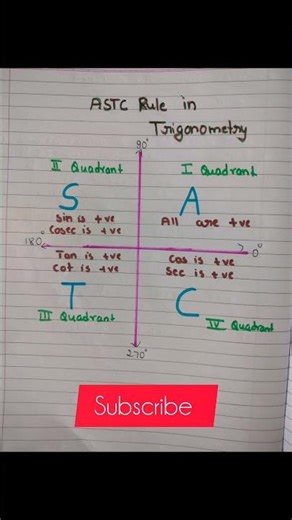 ASTC Rule in
Trigonometry
90°
II Quadrant
I Quadrant
S
A
Sin is +ve
Cosec is +ve
All are +ve
180°
0°
Tan is +ve
Cot is +ve
Cos is +ve
Sec is +ve
T
C
III Quadrant
IV Quadrant
270°
Subscribe